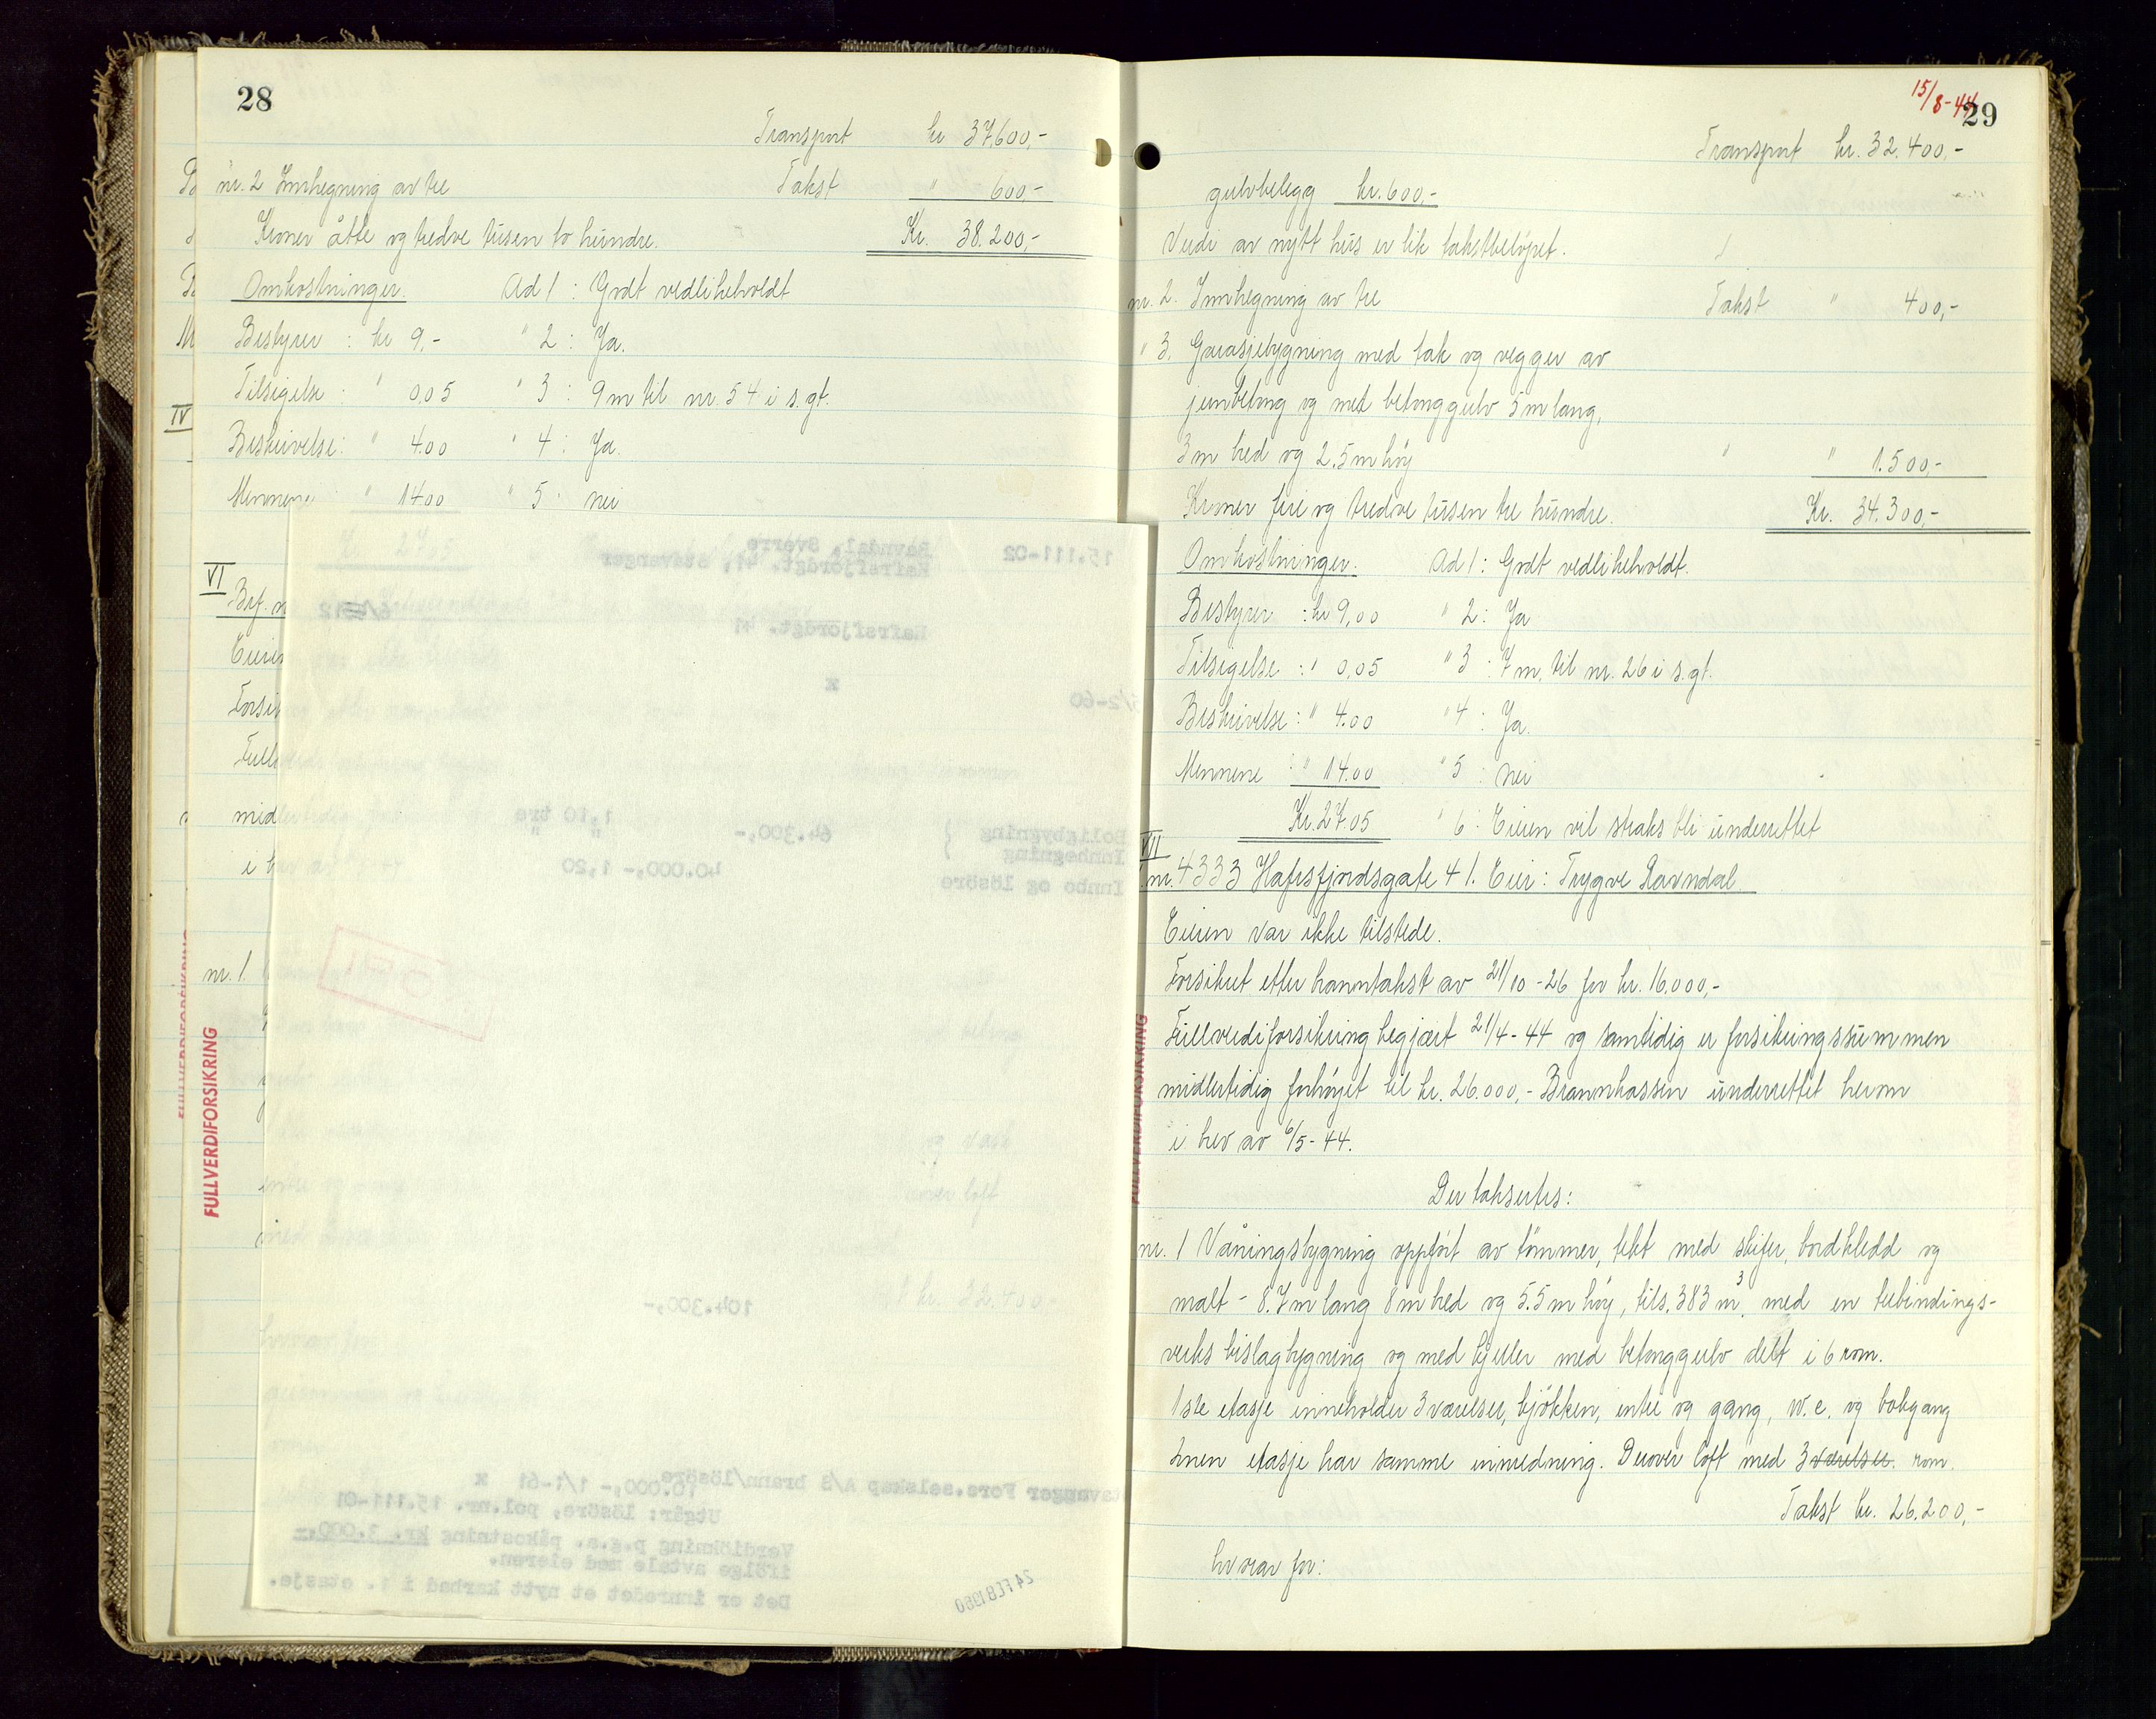 28
Transport kr 37.600,-
nr. 2 Innhegning av tre Takst " 600,-
Kroner åtte og tredve tusen to hundre. Kr. 38.200,-
Omkostninger. Ad 1 : Godt vedlikeholdt
Bestyrer : kr 9,- " 2 : Ja.
Tilsigelse : " 0,05 " 3 : 9 m til nr. 54 i s. gt.
Beskrivelse : " 4.00 " 4 : Ja.
Mennene : " 14.00 " 5 : nei
VI
mid
nr. 1.
IV
FULLVERDIFORSIKRING
15.111-02
Ravndal, Sverre
Hafrsfjordgt. 41, Stavanger
Hafrsfjordgt. 41
x
/2-60
Boligbygning } 64.300,- 1,10 tre
Innhegning "
Innbo og lösöre, 40.000,- 1,20
104.300,-
Stavanger Fors.selskap A/S brann/lösöre
10.000,- 1/1-61 x
Utgår: lösöre, pol.nr. 15.111-01
Verdiökning p.g.a. påkostning kr. 3.000,-
ifölge avtale med eieren.
Det er innredet et nytt karbad i 1. etasje.
24 FEB 1960
15/8-44
29
Transport kr. 32.400,-
gulvbelegg kr. 600,-
Verdi av nytt hus er lik takstbelöpet.
nr. 2. Innhegning av tre Takst " 400,-
" 3. Garasjebygning med tak og vegger av
jernbetong og med betonggulv 5 m lang,
3 m bred og 2.5 m höy " " 1.500,-
Kroner fire og tredve tusen tre hundre. Kr. 34.300,-
Omkostninger. Ad 1 : Godt vedlikeholdt.
Bestyrer : kr 9,00 " 2 : Ja
Tilsigelse : " 0,05 " 3 : 7 m, til nr. 26 i s. gt.
Beskrivelse : " 4.00 " 4 : Ja.
Mennene : " 14.00 " 5 : nei
Kr. 27.05 " 6 : Eieren vil straks bli underrettet
VII
nr. 4333 Hafrsfjordsgate 41. Eier : Trygve Ravndal.
Eieren var ikke tilstede.
Forsikret etter branntakst av 21/10-26 for kr. 16.000,-
Fullverdiforsikring begjært 21/4-44 og samtidig er forsikringssummen
midlertidig forhöyet til kr. 26.000,- Brannkassen underrettet herom
i brev av 6/5-44.
Der takseres :
FULLVERDIFORSIKRING
nr. 1 Våningsbygning oppfört av tömmer, tekt med skifer, bordkledd og
malt - 8.7 m lang 8 m bred og 5.5 m höy, tils. 383 m³, med en utbindings-
verks bislagbygning og med kjeller med betonggulv delt i 6 rom.
1ste etasje inneholder 3 værelser, kjökken, entre og gang, w.c. og bakgang
2nen etasje har samme innredning. Derover loft med 3 værelser. rom.
Takst kr. 26.200,-
hvorav for :